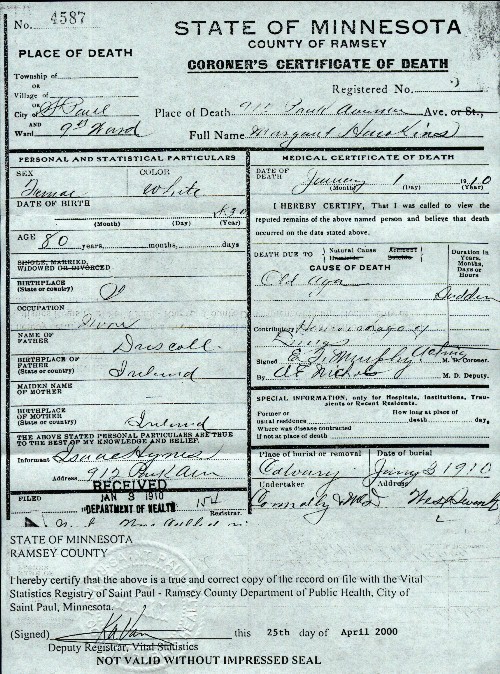 No. 4587
STATE OF MINNESOTA
COUNTY OF RAMSEY
CORONER'S CERTIFICATE OF DEATH
PLACE OF DEATH
Township of
OR
Village of
OR
City of St Paul
AND
Ward 9th Ward
Registered No.
Place of Death 912 Ave. or St.,
Full Name Margaret Hawkins
PERSONAL AND STATISTICAL PARTICULARS
SEX Female COLOR White
DATE OF BIRTH
1830
(Month) (Day) (Year)
AGE 80 years, months, days
SINGLE, MARRIED,
WIDOWED OR DIVORCED
BIRTHPLACE
(State or country)
OCCUPATION
NAME OF
FATHER Driscoll
BIRTHPLACE OF
FATHER Ireland
(State or country)
MAIDEN NAME
OF MOTHER
BIRTHPLACE
OF MOTHER Ireland
(State or country)
THE ABOVE STATED PERSONAL PARTICULARS ARE TRUE
TO THE BEST OF MY KNOWLEDGE AND BELIEF.
Informant Isaac Hynes
Address 912
RECEIVED
FILED JAN 3 1910
DEPARTMENT OF HEALTH 154
Registrar.
MEDICAL CERTIFICATE OF DEATH
DATE OF
DEATH January 1 1910
(Month) (Day) (Year)
I HEREBY CERTIFY, That I was called to view the
reputed remains of the above named person and believe that death
occurred on the date stated above.
DEATH DUE TO Natural Cause Accident
Homicide Suicide
CAUSE OF DEATH
Duration in
Years,
Months,
Days or
Hours
Old Age
Sudden
Contributory Hemorrhage of
Lungs
Signed E. F. Murphy Acting M. D. Coroner.
By A E Nichols M. D. Deputy.
SPECIAL INFORMATION, only for Hospitals, Institutions, Tran-
sients or Recent Residents.
Former or How long at place of
usual residence death day,
Where was disease contracted
if not at place of death
Place of burial or removal Date of burial
Calvary Jany 3 1910
Undertaker Address
STATE OF MINNESOTA
RAMSEY COUNTY
I hereby certify that the above is a true and correct copy of the record on file with the Vital
Statistics Registry of Saint Paul - Ramsey County Department of Public Health, City of
Saint Paul, Minnesota.
(Signed) this 25th day of April 2000
Deputy Registrar, Vital Statistics
NOT VALID WITHOUT IMPRESSED SEAL